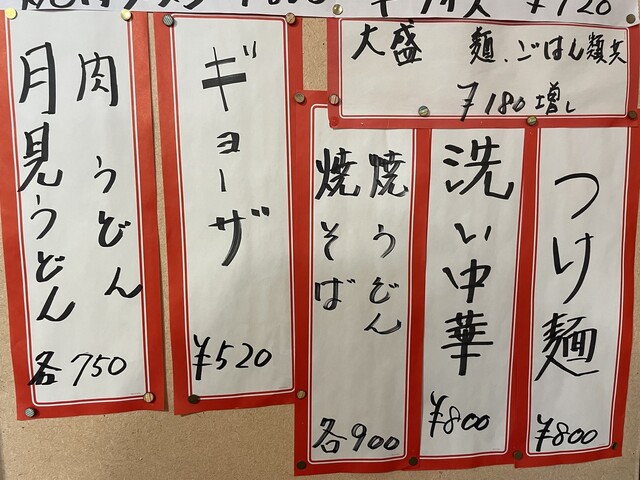 大盛 麺、ごはん類共
¥180増し
つけ麺
¥800
洗い中華
¥800
焼うどん
焼そば
各900
ギョーザ
¥520
肉うどん
月見うどん
各750